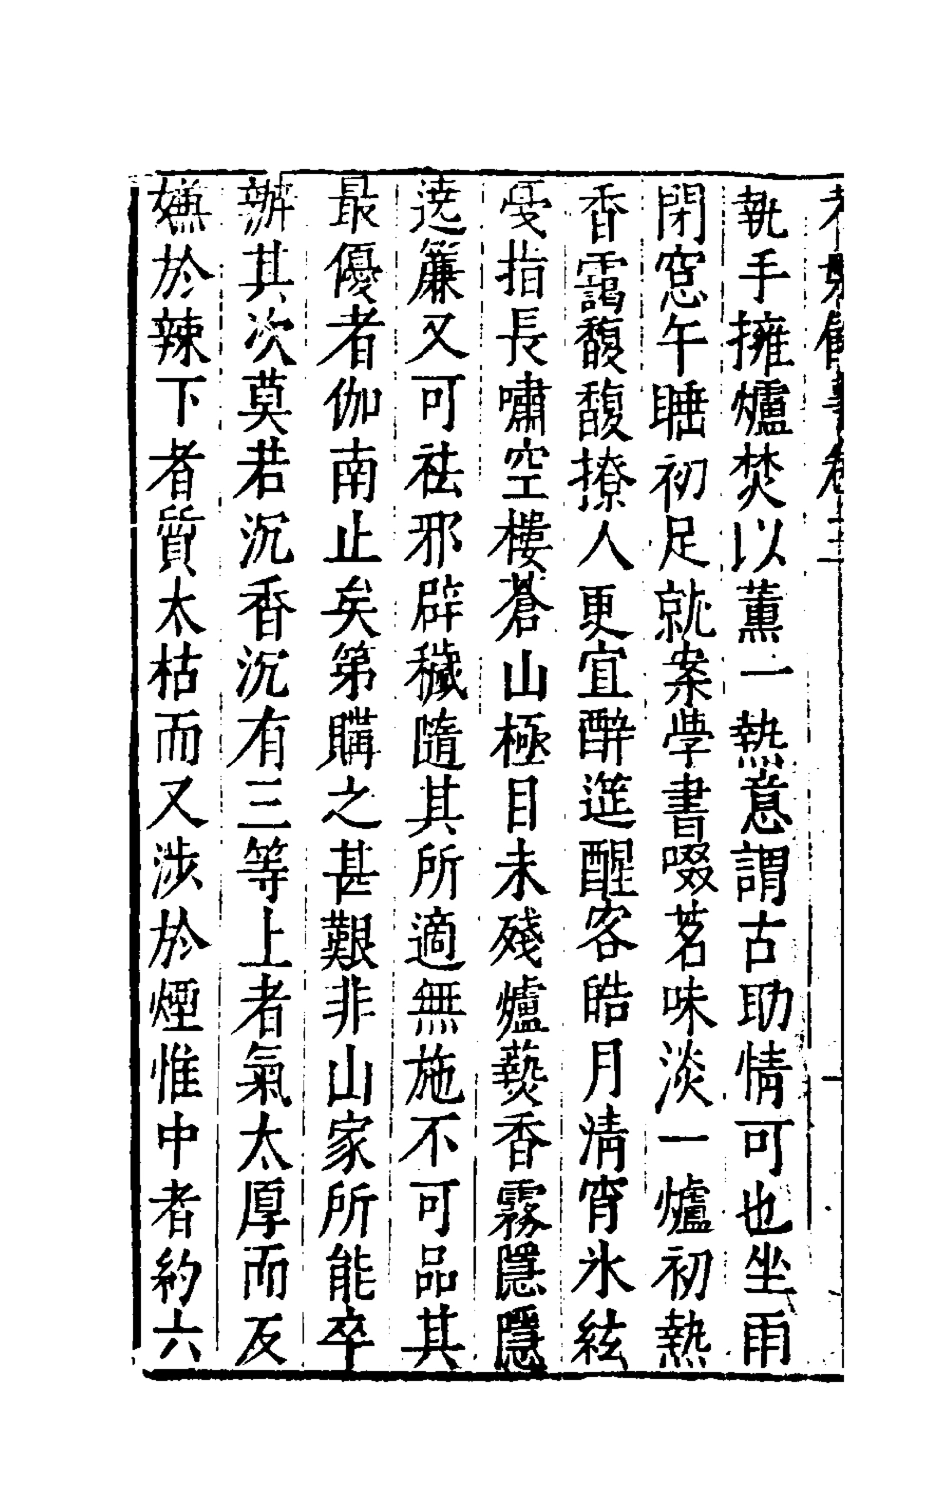 執手擁爐焚以薰一熱意謂古助情可也坐雨
閉窓午睡初足就案学書啜茗味淡一爐初熱
香靄馥馥撩人更宜醉筵醒客皓月清宵氷絃
戞指長嘯空樓蒼山極目未殘爐爇香霧隱隱
遶簾又可祛邪辟穢隨其所適無施不可品其
最優者伽南止矣第購之甚艱非山家所能卒
辦其次莫若沉香沉有三等上者氣太厚而反
嫌於辣下者質太枯而又涉於煙惟中者約六